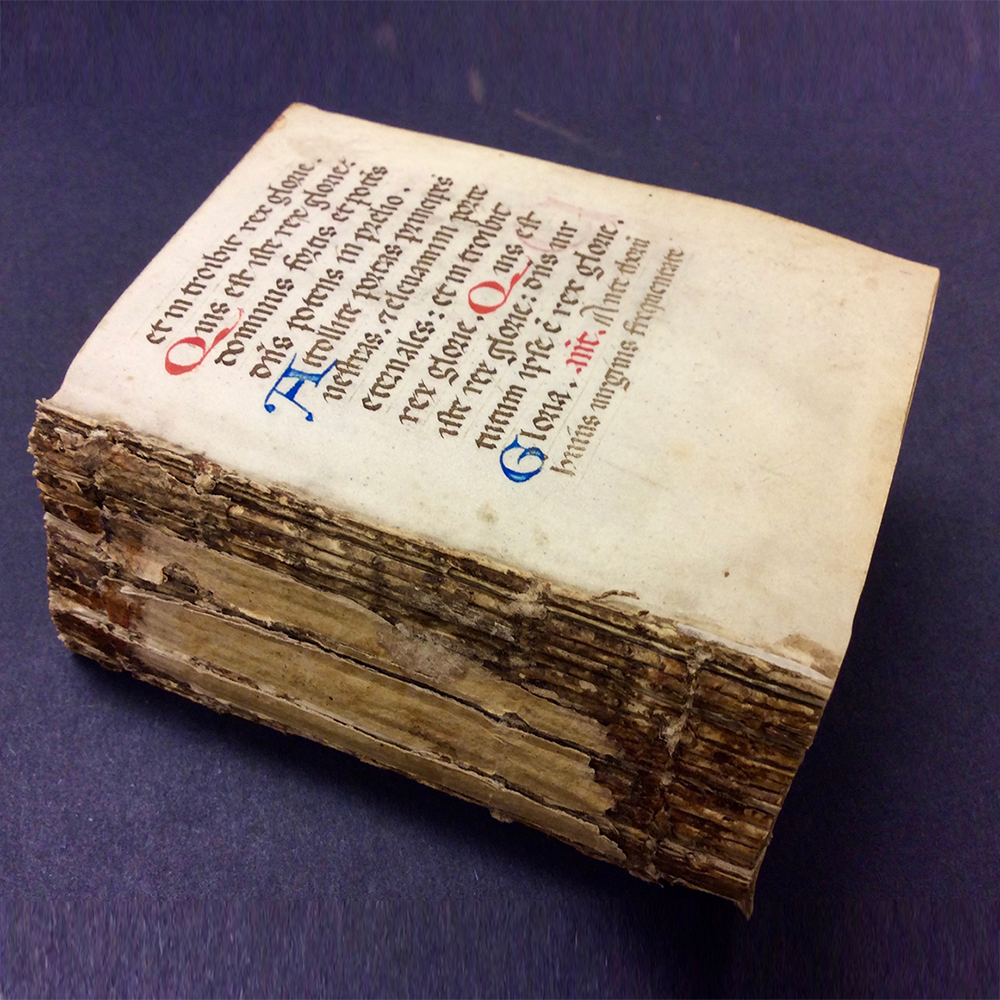 et in troibit rex glorie.
Quis est iste rex glorie:
dominus fortis et potēs
dn̄s potens in prelio.
Attollite portas principes
uestras. ⁊ eleuamini porte
eternales: et in troibit
rex glorie. Quis est
iste rex glorie: dn̄s uir
tutum ipse ē rex glorie.
Gloria. ant. Ante thori
huius uirginis frequentate